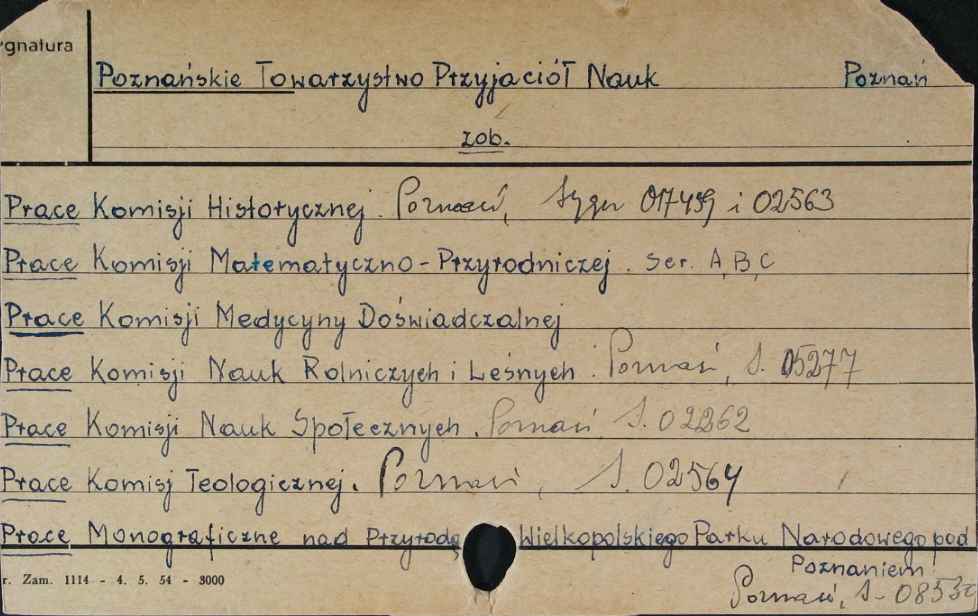 ygnatura
Poznańskie Towarzystwo Przyjaciół Nauk Poznań
zob.
Prace Komisji Historycznej. Poznań, Sygn 017459 i 02563
Prace Komisji Matematyczno-Przyrodniczej. Ser. A, B, C
Prace Komisji Medycyny Doświadczalnej
Prace Komisji Nauk Rolniczych i Leśnych. Poznań, S. 05277
Prace Komisji Nauk Społecznych. Poznań S. 02262
Prace Komisj Teologicznej. Poznań, S. 02564
Prace Monograficzne nad Przyrodą Wielkopolskiego Parku Narodowego pod
Poznaniem
r. Zam. 1114 - 4. 5. 54 - 3000
Poznań, S-